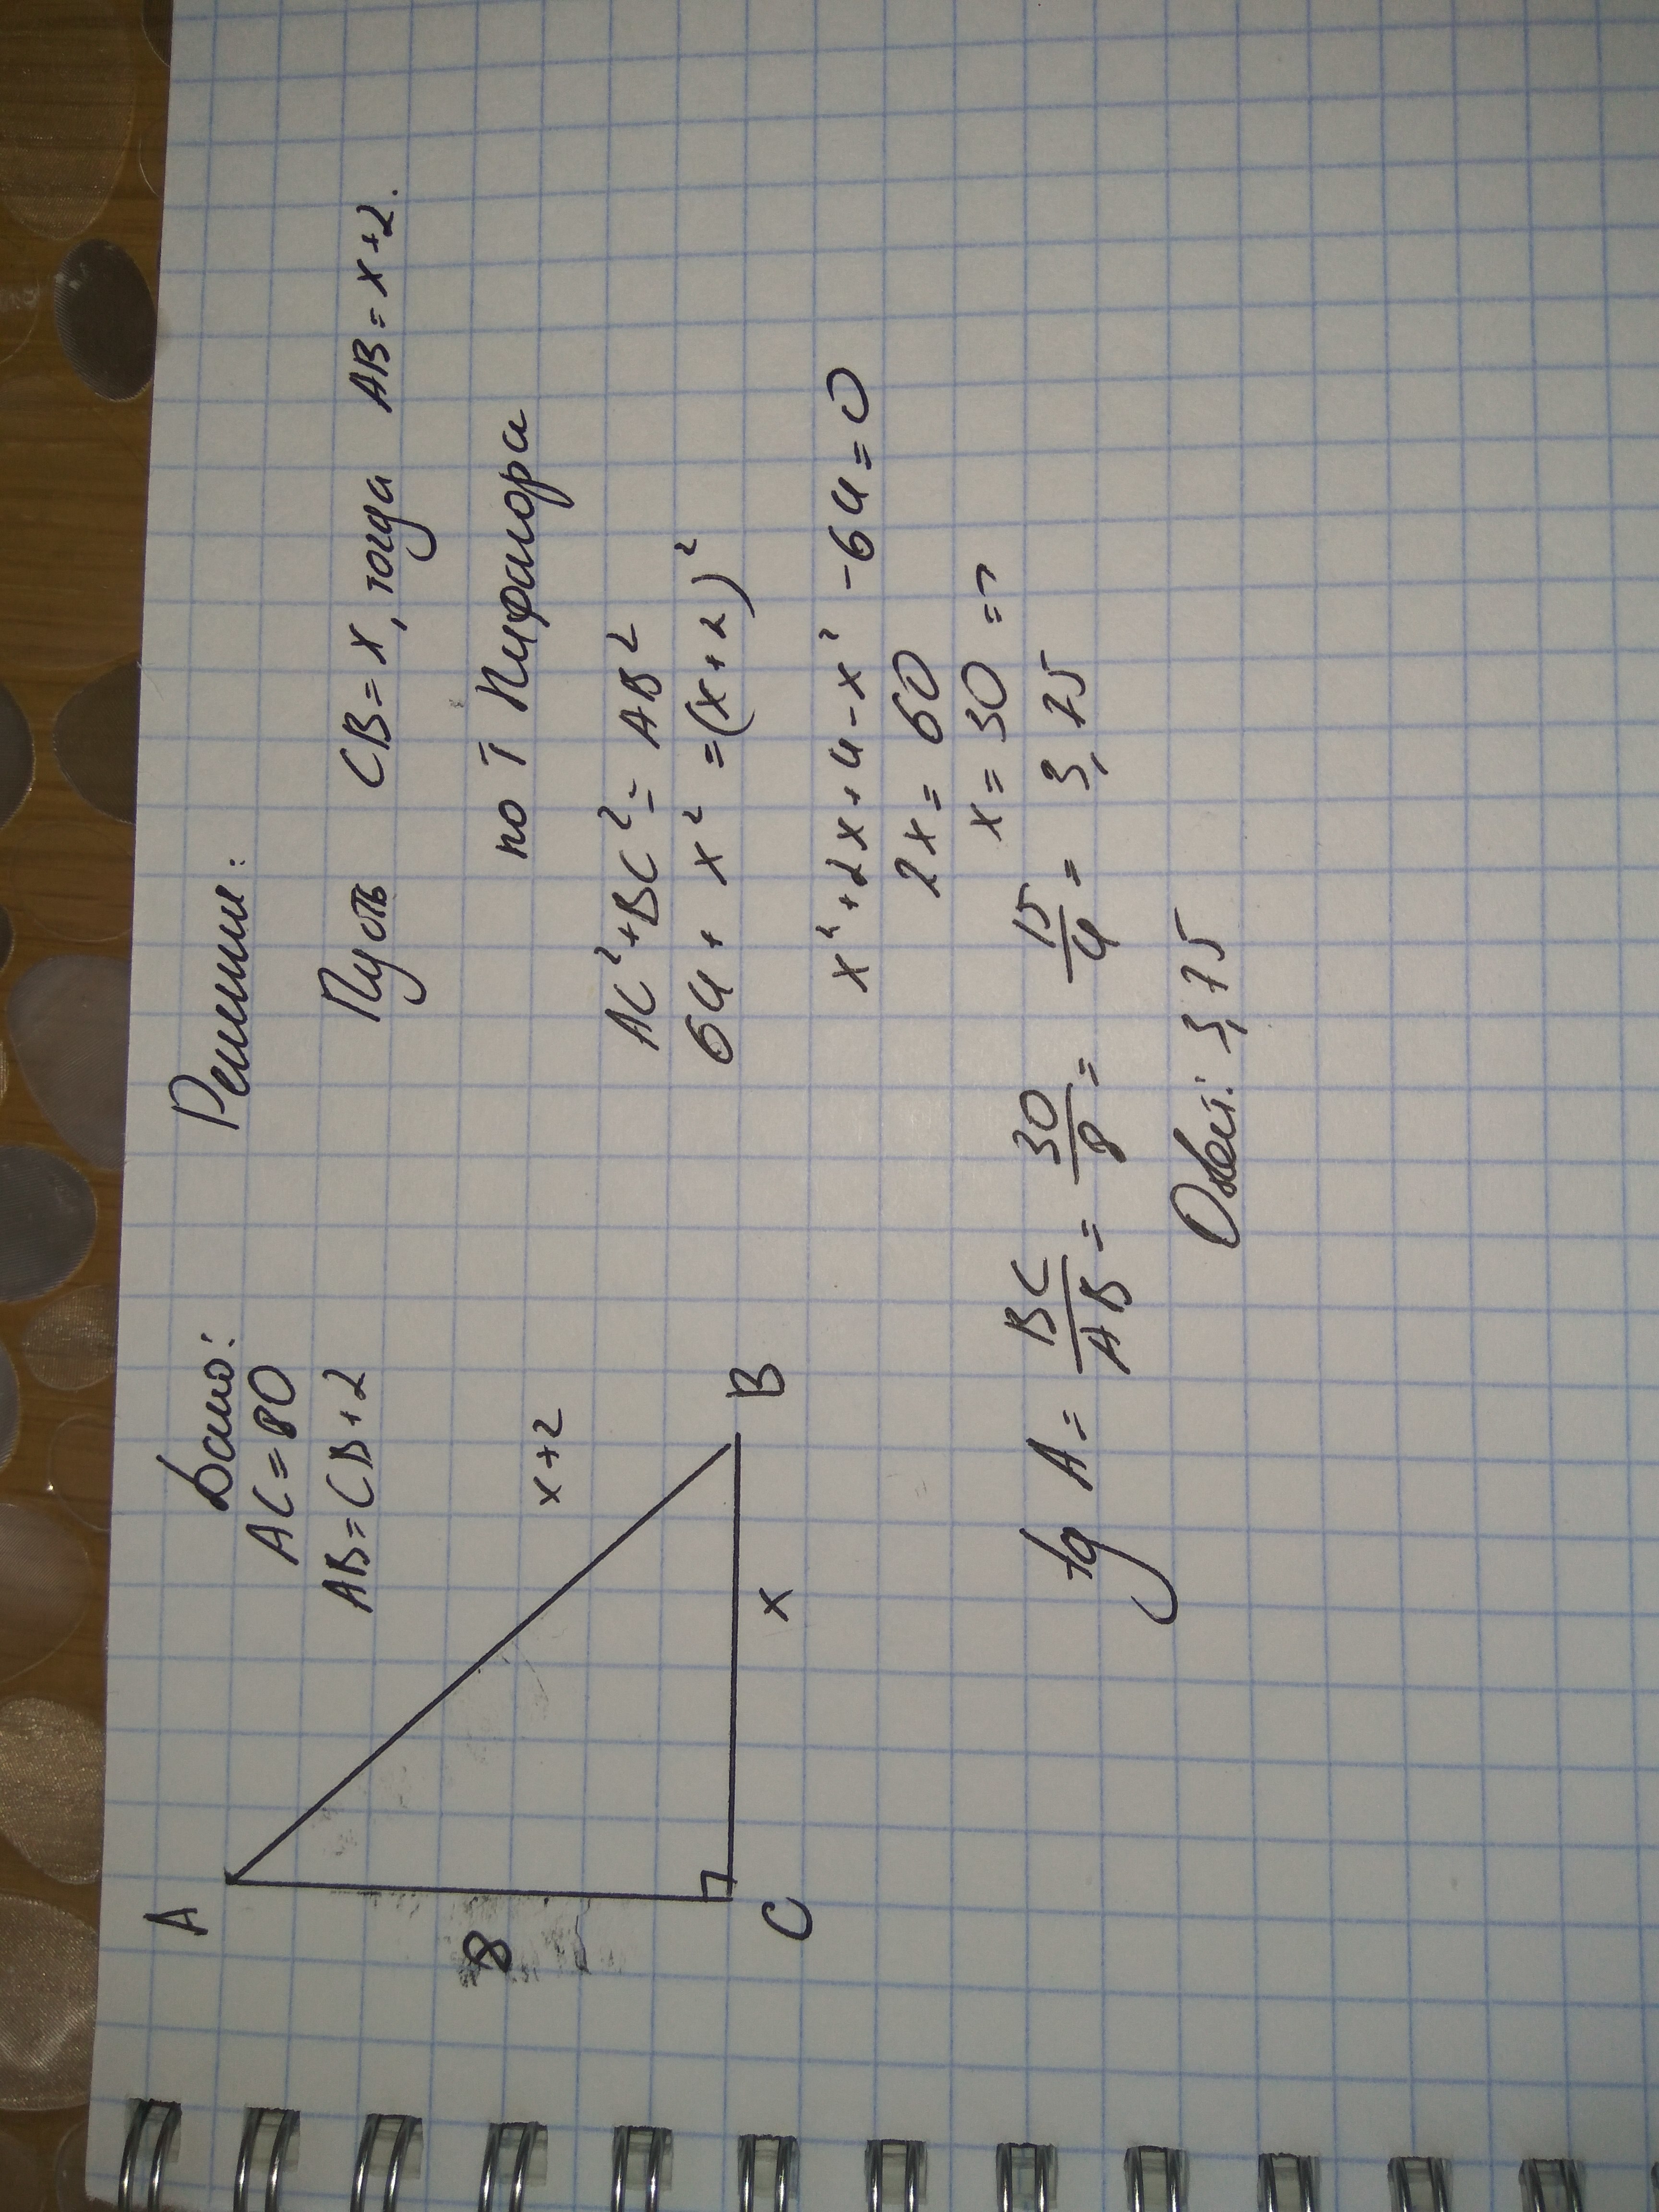 Дано:
AC=80
AB=CB+2
A
8
x+2
C
x
B
Решение:
Пусть CB=x, тогда AB=x+2.
по Т Пифагора
AC²+BC²=AB²
64+x²=(x+2)²
x²+2x+4-x²-64=0
2x=60
x=30 =>
tg A= BC/AB = 30/8 = 15/4 = 3,75
Ответ: 3,75